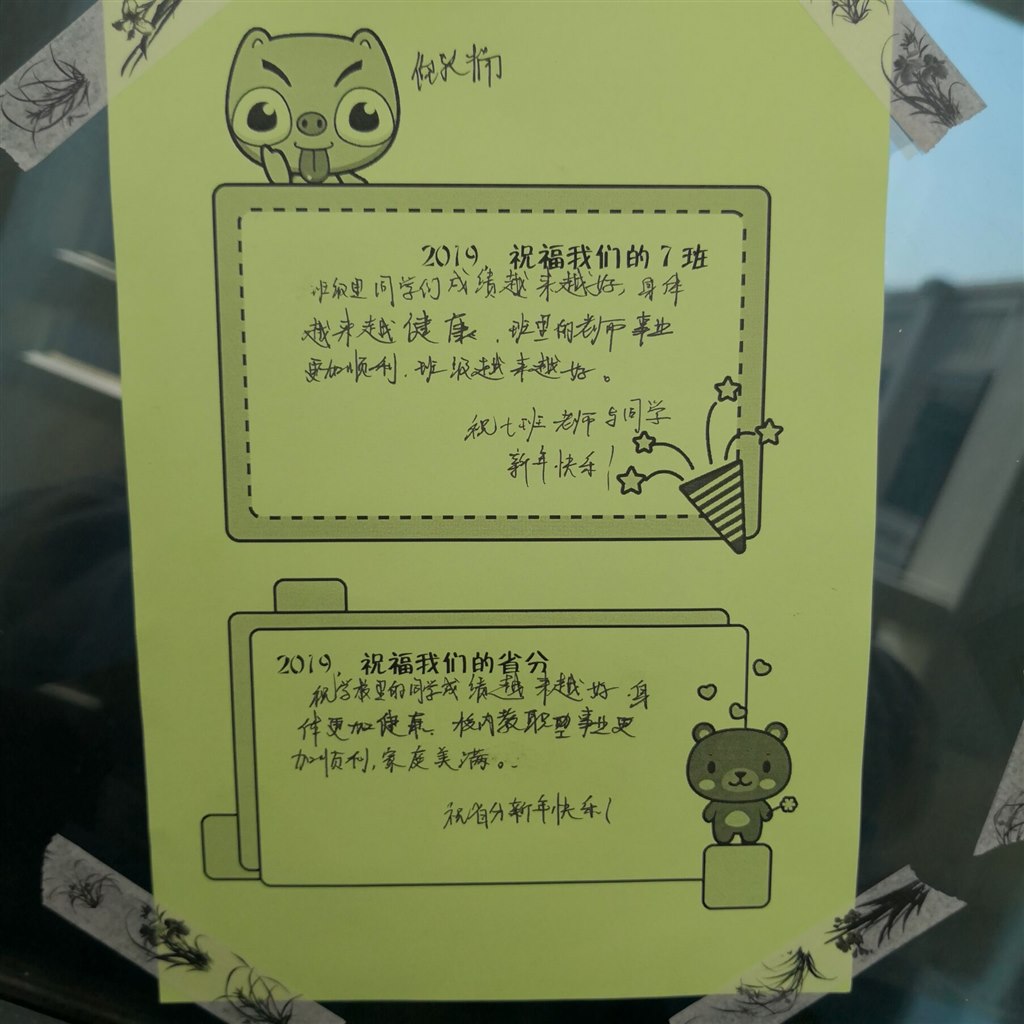 2019，祝福我们的7班
班级里同学们成绩越来越好，身体
越来越健康，班里的老师事业
更加顺利，班级越来越好。
祝七班老师与同学
新年快乐！
2019，祝福我们的省分
祝学校里的同学成绩越来越好，身
体更加健康、校内教职工事业更
加顺利，家庭美满。
祝省分新年快乐！